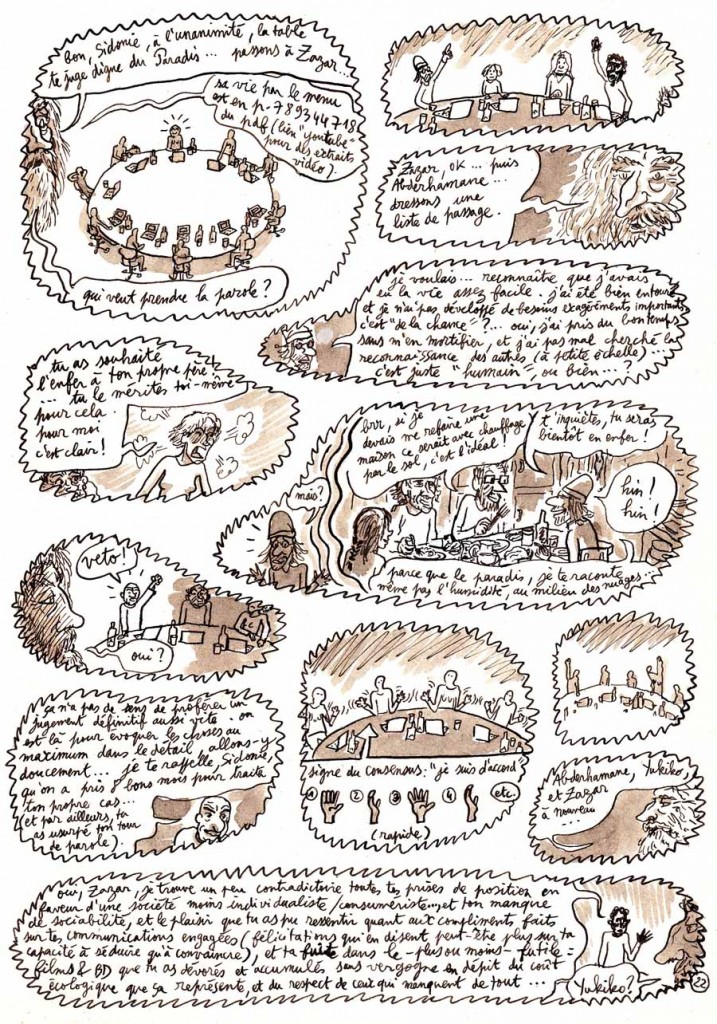 bon, Sidonie, à l'unanimité, la table
te juge digne du Paradis... passons à Zazar...
sa vie par le menu
est en p. 789344718
du pdf (lien "youtube"
pour des extraits
vidéo).
qui veut prendre la parole ?
Zazar, ok... puis
Abderhamane...
dressons une
liste de passage.
je voulais... reconnaître que j'avais
eu la vie assez facile. j'ai été bien entouré
et je n'ai pas développé de besoins exagérément importants
c'est "de la chance" ?... oui, j'ai pris du bon temps
sans m'en mortifier, et j'ai pas mal cherché la
reconnaissance des autres (à petite échelle)...
c'est juste "humain", ou bien... ?
tu as souhaité
l'enfer à ton propre père !
... tu le mérites toi-même
pour cela.
pour moi
c'est clair !
brr, si je
devais me refaire une
maison ce serait avec chauffage
par le sol, c'est l'idéal !
t'inquiètes, tu seras
bientôt en enfer !
mais ?
hin !
hin !
parce que le paradis, je te raconte
même pas l'humidité, au milieu des nuages...
veto !
oui ?
ça n'a pas de sens de proférer un
jugement définitif aussi vite. on
est là pour évoquer les choses au
maximum dans le détail. allons-y
doucement... je te rappelle, Sidonie,
qu'on a pris 8 bons mois pour traiter
ton propre cas...
(et par ailleurs, tu
as usurpé ton tour
de parole).
signe du consensus : "je suis d'accord"
1 2 3 4 etc.
(rapide)
Abderhamane, Yukiko,
et Zazar
à nouveau...
oui, Zazar, je trouve un peu contradictoire toutes tes prises de position en
faveur d'une société moins individualiste/consumériste... et ton manque
de sociabilité, et le plaisir que tu as pu ressentir quant aux compliments faits
sur tes communications engagées (félicitations qui en disent peut-être plus sur ta
capacité à séduire qu'à convaincre), et ta fuite dans le -plus ou moins- futile =
films & BD que tu as dévorés et accumulés sans vergogne en dépit du coût
écologique que ça représente, et du respect de ceux qui manquent de tout...
Yukiko ?
22